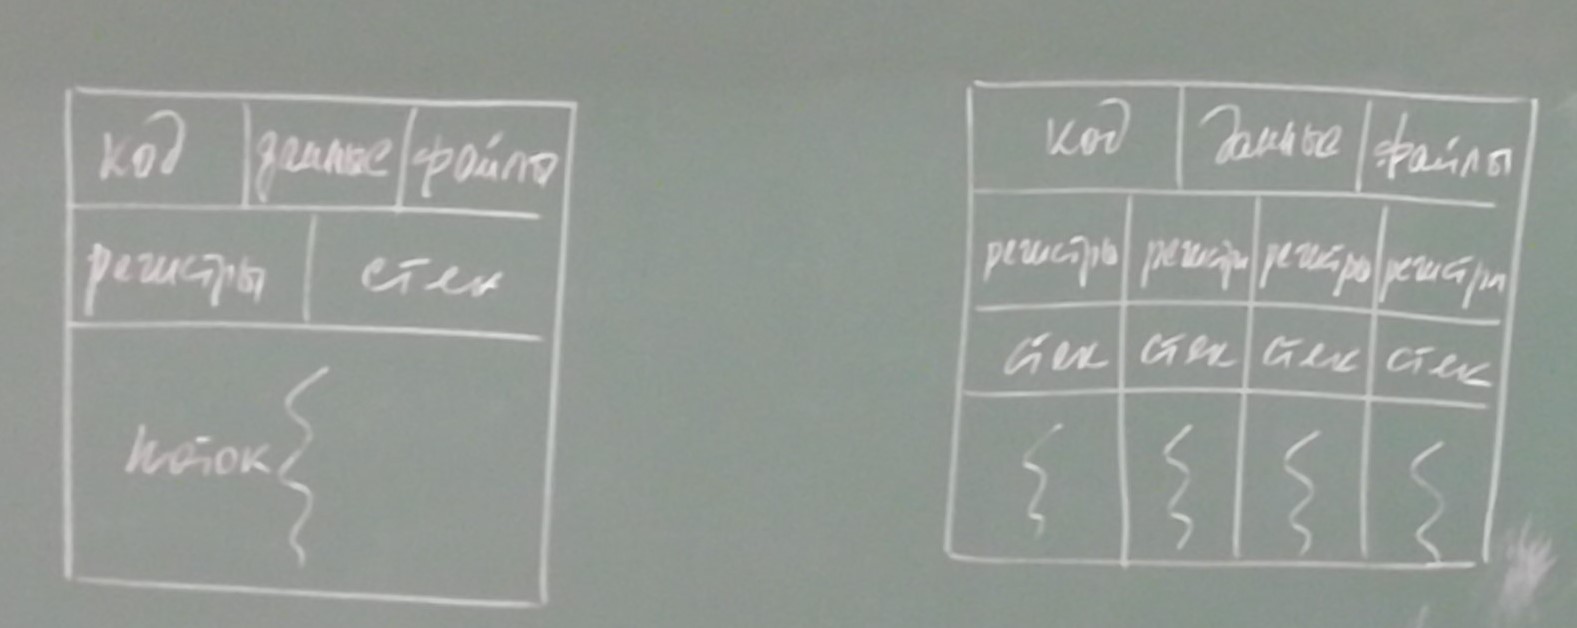 код данные файлы
регистры стек
поток
код данные файлы
регистры регистры регистры регистры
стек стек стек стек